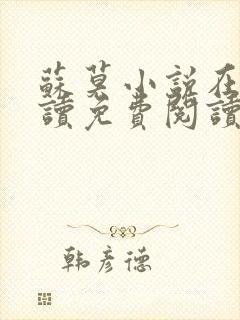 蘇莫小說在
讀免費閱讀
韩彦德